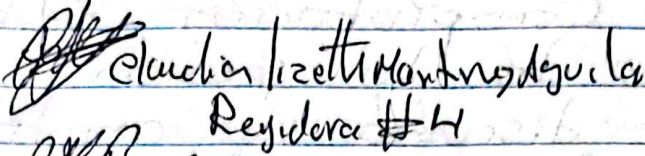 Claudia lizeth Martinez Aguila
Regidora #4